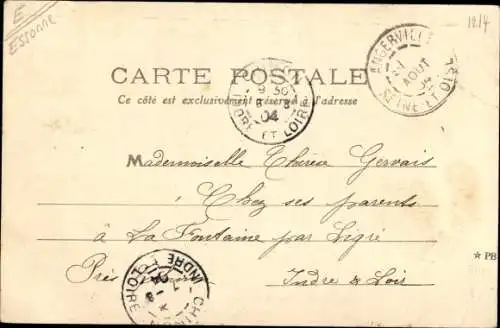 E
Essonne
1214
CARTE POSTALE
Ce côté est exclusivement réservé à l'adresse
ANGERVILLE
AOUT
04
SEINE-ET-OISE
9 30
8
04
INDRE ET LOIRE
Mademoiselle Thérèse Gervais
Chez ses parents
à La Fontaine par Ligré
Près
Indre & Loir
★ PB
CHINON
INDRE ET LOIRE
04